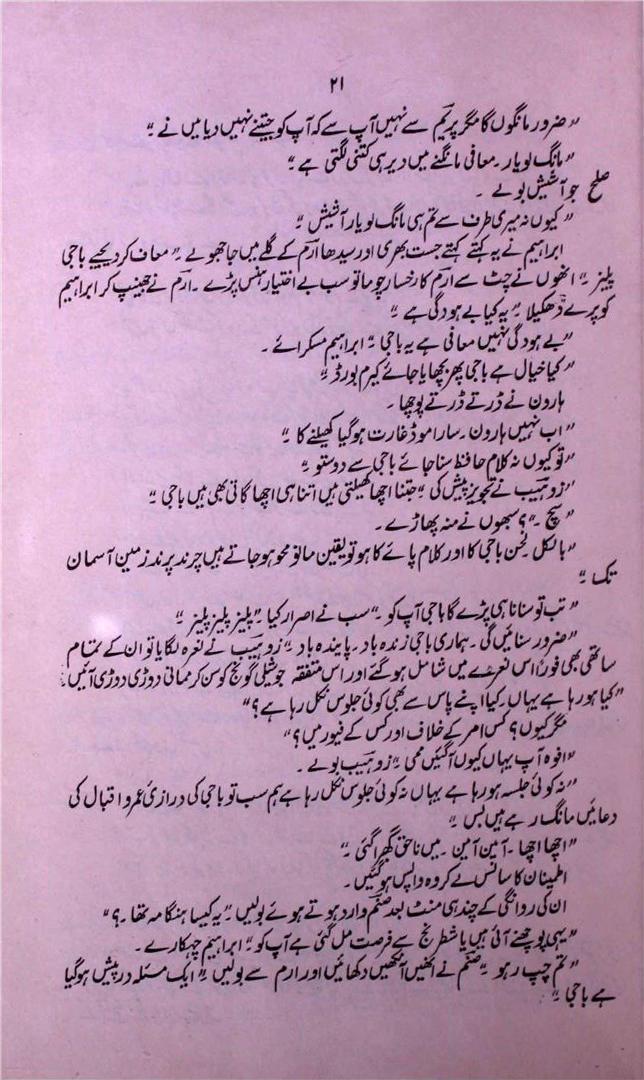 ۲۱
”ضرور مانگوں گا مگر پریم سے نہیں آپ سے کہ آپ کو جیتنے نہیں دیا میں نے۔“
”مانگ لو یار۔ معافی مانگنے میں دیر ہی کتنی لگتی ہے۔“
صلح جو آشیش بولے۔
”کیوں نہ میری طرف سے تم ہی مانگ لو یار آشیش۔“
ابراہیم نے یہ کہتے کہتے جست بھری اور سیدھا ارم کے گلے میں جا جھولے۔ ”معاف کر دیجیے باجی
پلیز۔“ انھوں نے چٹ سے ارم کا رخسار چوما تو سب بے اختیار ہنس پڑے۔ ارم نے جھینپ کر ابراہیم
کو پرے دھکیلا۔ ”یہ کیا بے ہودگی ہے۔“
”بے ہودگی نہیں معافی ہے یہ باجی۔“ ابراہیم مسکرائے۔
”کیا خیال ہے باجی پھر بچھایا جائے کیرم بورڈ۔“
ہارون نے ڈرتے ڈرتے پوچھا۔
”اب نہیں ہارون۔ سارا موڈ غارت ہوگیا کھیلنے کا۔“
”تو کیوں نہ کلام حافظ سنا جائے باجی سے دوستو۔“
”زوہیب نے تجویز پیش کی۔ ”جتنا اچھا کھیلتی ہیں اتنا ہی اچھا گاتی بھی ہیں باجی۔“
”سچ۔“؟ سبھوں نے منہ پھاڑے۔
”بالکل۔ لحن باجی کا اور کلام پائے کا ہو تو یقین مانو محو ہو جاتے ہیں چرند پرند زمین آسمان
تک۔“
”تب تو سنانا ہی پڑے گا باجی آپ کو۔“ سب نے اصرار کیا۔ ”پلیز پلیز پلیز۔“
”ضرور سنائیں گی۔ ہماری باجی زندہ باد۔ پایندہ باد۔“ زوہیب نے نعرہ لگایا تو ان کے تمام
ساتھی بھی فوراً اس نعرے میں شامل ہو گئے اور اس متفقہ جوشیلی گونج کو سن کر ممانی دوڑی دوڑی آئیں۔
”کیا ہو رہا ہے یہاں۔ کیا اپنے پاس سے بھی کوئی جلوس نکل رہا ہے؟“
مگر کیوں؟ کس امر کے خلاف اور کس کے فیور میں؟“
”افوہ آپ یہاں کیوں آگئیں ممی۔“ زوہیب بولے۔
”نہ کوئی جلسہ ہو رہا ہے یہاں نہ کوئی جلوس نکل رہا ہے ہم سب تو باجی کی درازیٔ عمر و اقبال کی
دعائیں مانگ رہے ہیں بس۔“
”اچھا اچھا۔ آمین آمین۔ میں ناحق گھبرا گئی۔“
اطمینان کا سانس لے کر وہ واپس ہوگئیں۔
ان کی روانگی کے چند ہی منٹ بعد صنم وارد ہوتے ہوئے بولیں۔ ”یہ کیسا ہنگامہ تھا۔؟“
”یہی پوچھنے آئی ہیں یا شطرنج سے فرصت مل گئی ہے آپ کو۔“ ابراہیم چہکارے۔
”تم چپ رہو۔“ صنم نے انھیں آنکھیں دکھائیں اور ارم سے بولیں۔ ”ایک مسئلہ درپیش ہوگیا
ہے باجی۔“